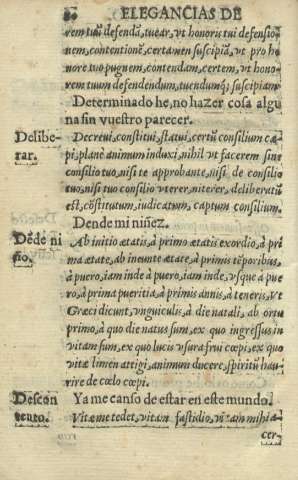 ELEGANCIAS DE
rem tuũ defendã, tuear, vt honoris tui defensio
nem, contentionẽ, certamen suscipiã, vt pro ho
nore tuo pugnem, contendam, certem, vt hono
rem tuum defendendum, tuendumq́; suscipiam
Determinado he, no hazer cosa algu
na sin vuestro parecer.
Delibe-
rar.
Decreui, constitui, statui, certũ consilium cæ
pi, planè animum induxi, nihil vt facerem sine
consilio tuo, nisi te approbante, nisi de consilio
tuo, nisi tuo consilio vterer, niterer, deliberatũ
est, cõstitutum, iudicatum, captum consilium.
Dende mi niñez.
Dẽde ni
ño,
Ab initio ætatis, à primo ætatis exordio, à pri
ma ætate, ab ineunte ætate, à primis tẽporibus,
à puero, iam inde à puero, iam inde, vsque à pue
ro, à prima pueritia, à primis annis, à teneris, vt
Græci dicunt, vnguiculis, à die natali, ab ortu
primo, à quo die natus sum, ex quo ingressus in
vitam sum, ex quo lucis vsura frui cœpi, ex quo
vitæ limen attigi, animum ducere, spiritũ hau
rire de cœlo cœpi.
Descon
tento.
Ya me canso de estar en este mundo.
Vitæ me tedet, vitam fastidio, vitam mihi a-
cer-